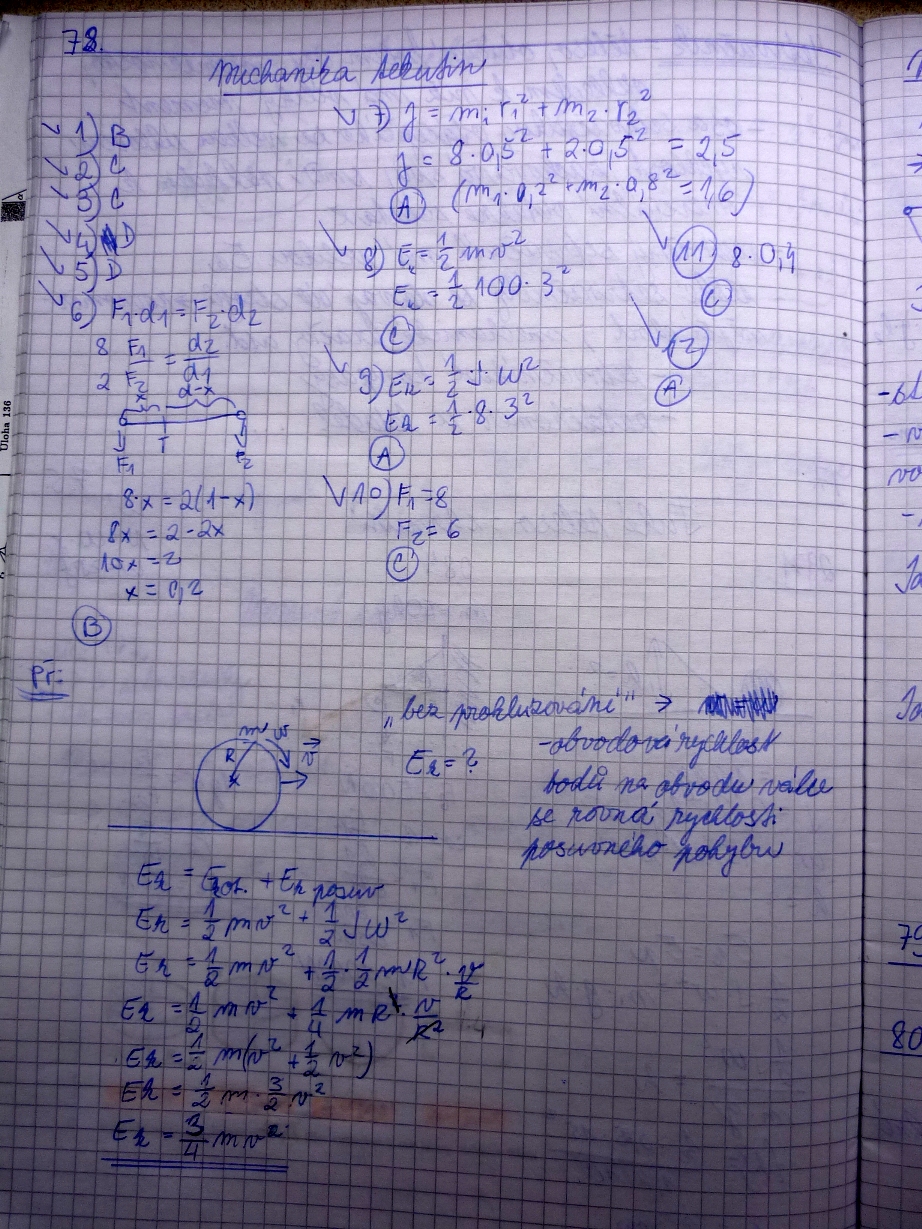 78.
Mechanika tekutin
1) B
2) C
3) C
4) D
5) D
6) F₁·d₁=F₂·d₂
8 F₁/2 F₂ = d₂/d₁
x d-x
T
F₁ F₂
8·x = 2(1-x)
8x = 2-2x
10x = 2
x = 0,2
B
7) J = m₁ r₁² + m₂·r₂²
J = 8·0,5² + 2·0,5² = 2,5
A (m₁·0,2² + m₂·0,8² = 1,6)
8) Eₖ = 1/2 mv²
Eₖ = 1/2 100·3²
C
9) Eₖ = 1/2 J·ω²
Eₖ = 1/2·8·3²
A
10) F₁=8
F₂=6
C
11) 8·0,4
C
12
A
Př:
m ω
R v⃗
"bez prokluzování" →
-obvodová rychlost
Eₖ=?
bodů na obvodu válce
se rovná rychlosti
posuvného pohybu
Eₖ = Erot. + Eₖ posuv
Eₖ = 1/2 mv² + 1/2 Jω²
Eₖ = 1/2 mv² + 1/2·1/2 mR²·v/R
Eₖ = 1/2 mv² + 1/4 mR²·v/R²
Eₖ = 1/2 m(v² + 1/2 v²)
Eₖ = 1/2 m·3/2 v²
Eₖ = 3/4 mv²
Úloha 136
79
80